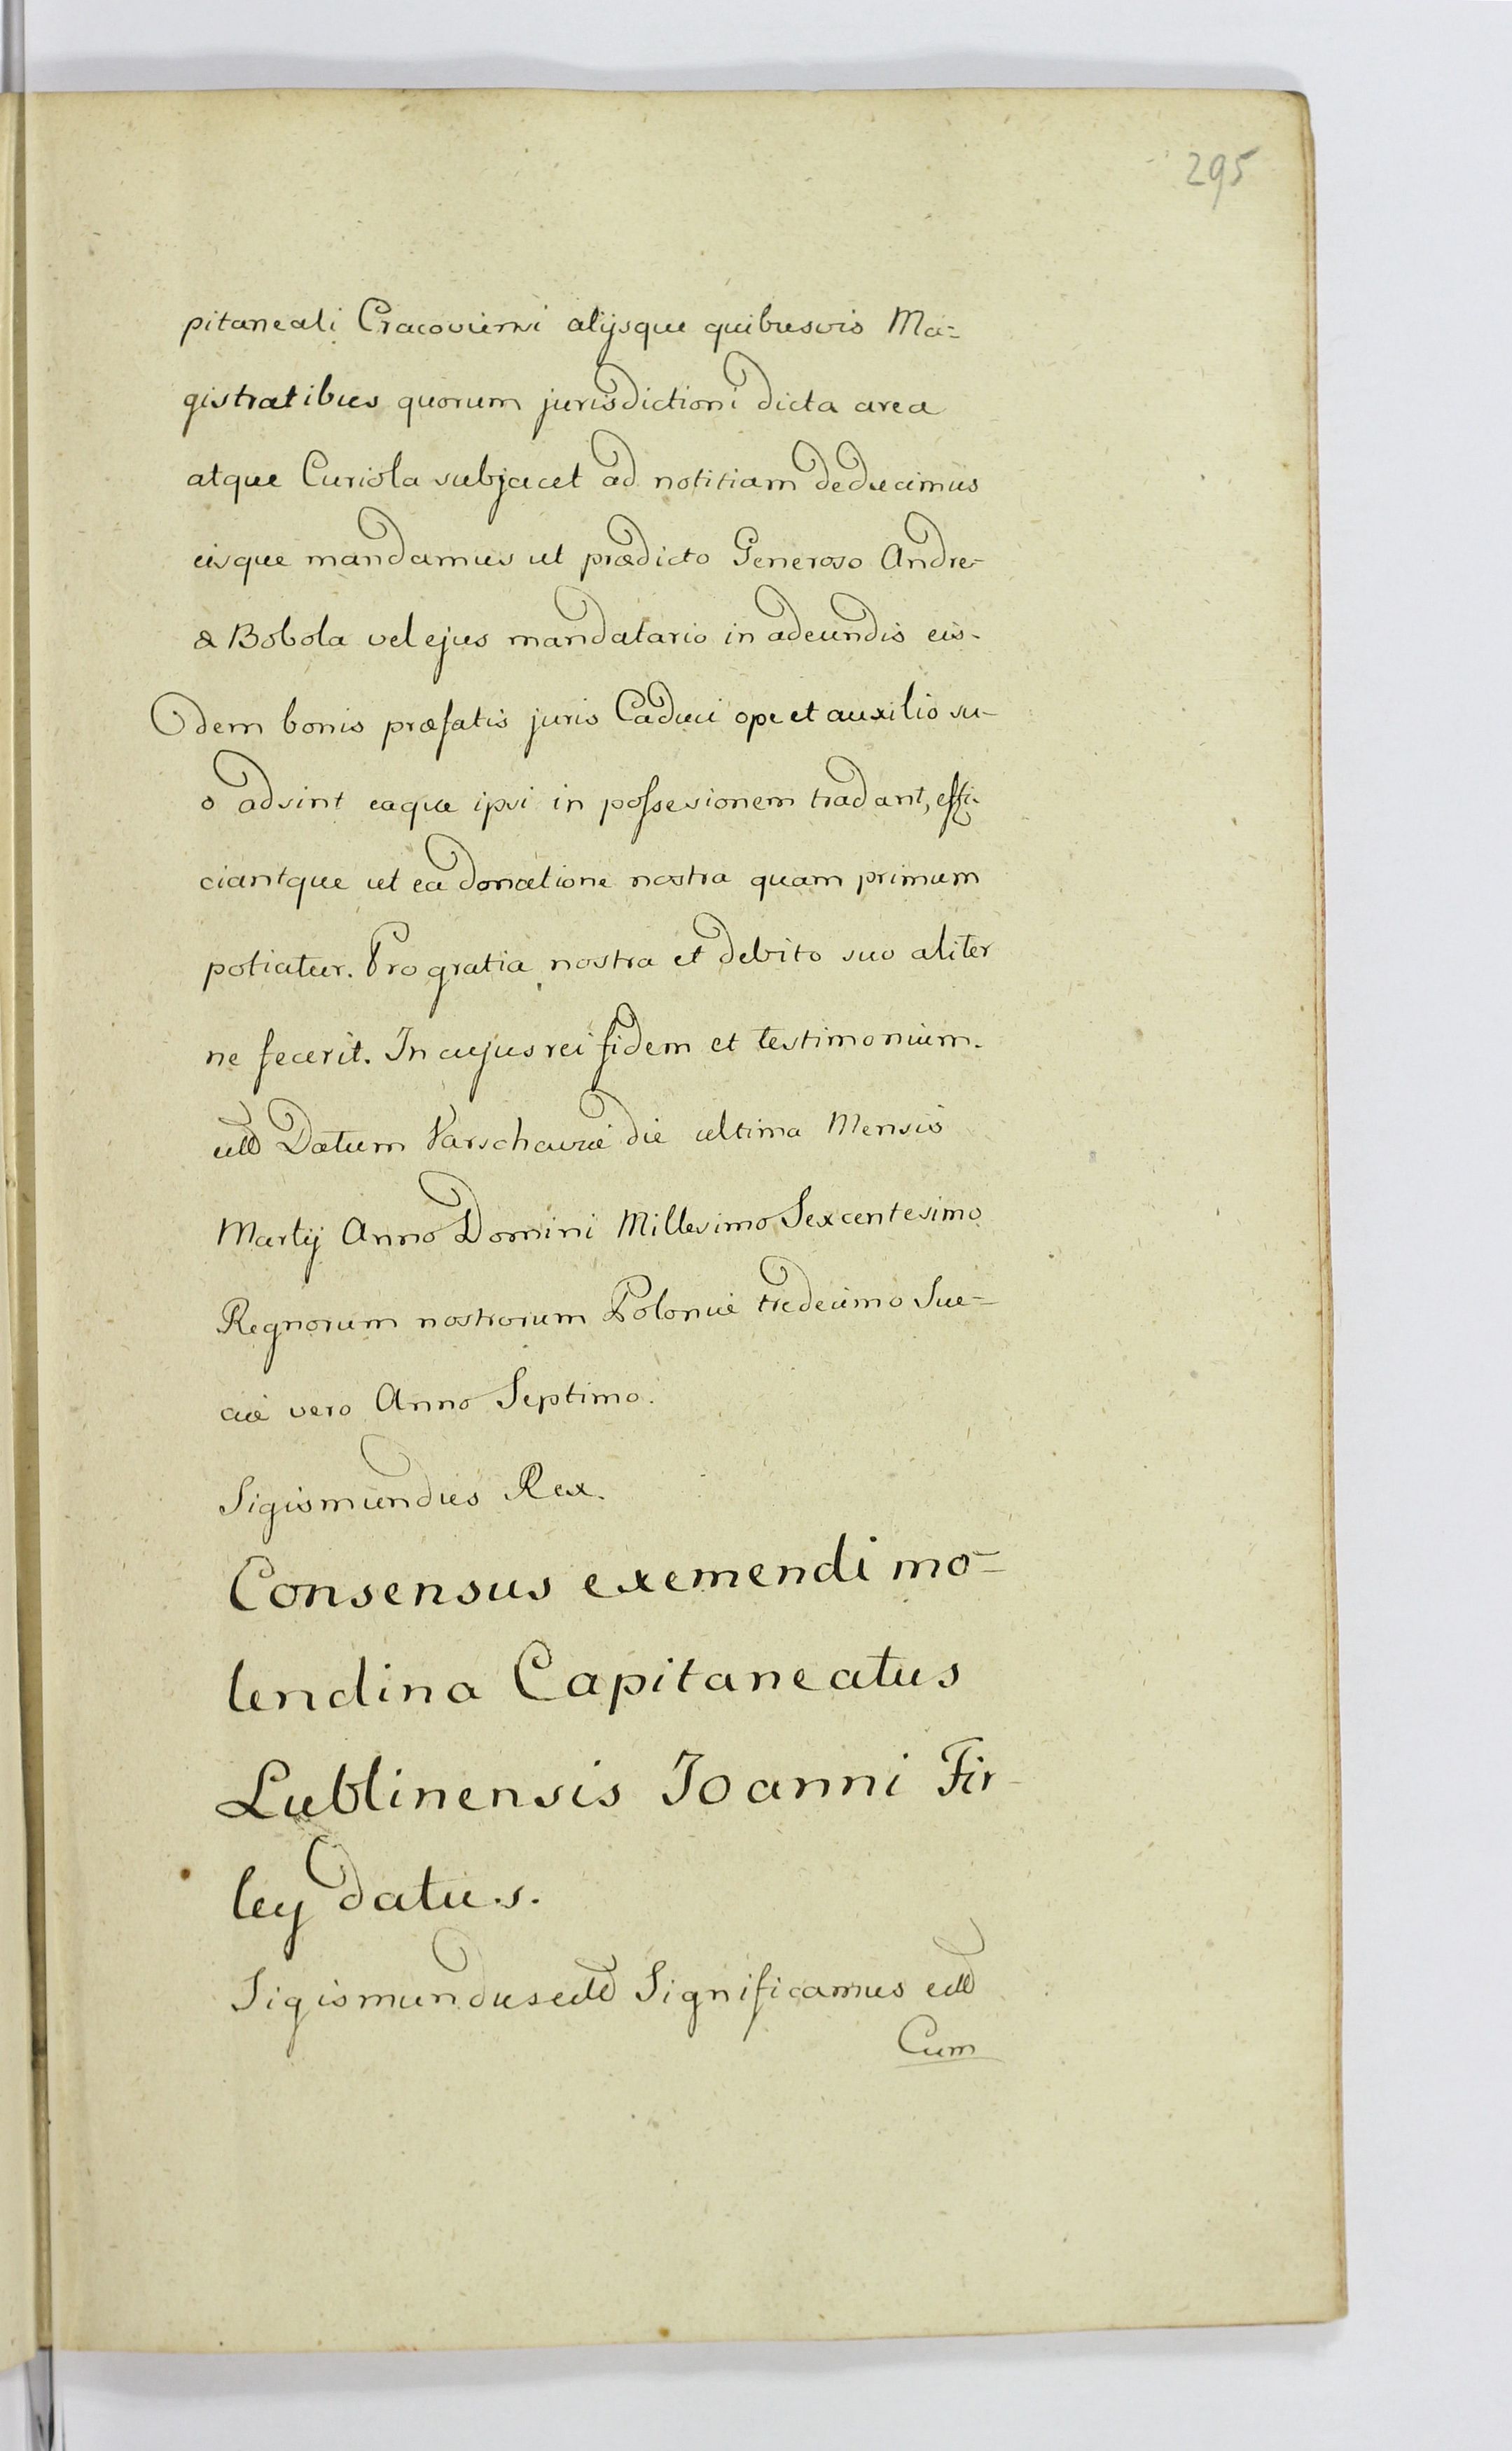 295
pitaneali Cracoviensi alijsque quibusvis Ma=
gistratibus quorum jurisdictioni dicta area
atque Curiola subjacet ad notitiam deducimus
eisque mandamus ut prædicto Generoso Andre-
æ Bobola vel ejus mandatario in adeundis eis-
dem bonis præfatis juris Caduci ope et auxilio su-
o adsint eaque ipsi in possesionem tradant, effi-
ciantque ut ea donatione nostra quam primum
potiatur. Pro gratia nostra et debito suo aliter
ne fecerit. In cujus rei fidem et testimonium.
Datum Varschaviæ die ultima Mensis
Martij Anno Domini Millesimo Sexcentesimo
Regnorum nostrorum Poloniæ tredecimo Sue=
ciæ vero Anno Septimo.
Sigismundus Rex.
Consensus exemendi mo=
lendina Capitaneatus
Lublinensis Joanni Fir-
ley datus.
Sigismundus Significamus
Cum